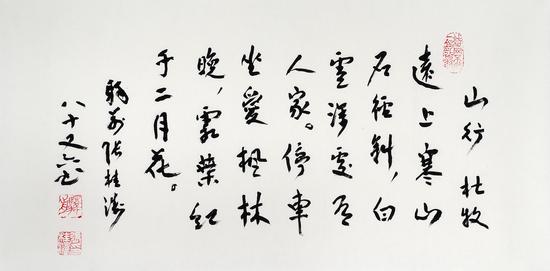 山行 杜牧
遠上寒山
石徑斜，白
雲深處有
人家。停車
坐愛楓林
晚，霜葉紅
于二月花。
张桂
八十又